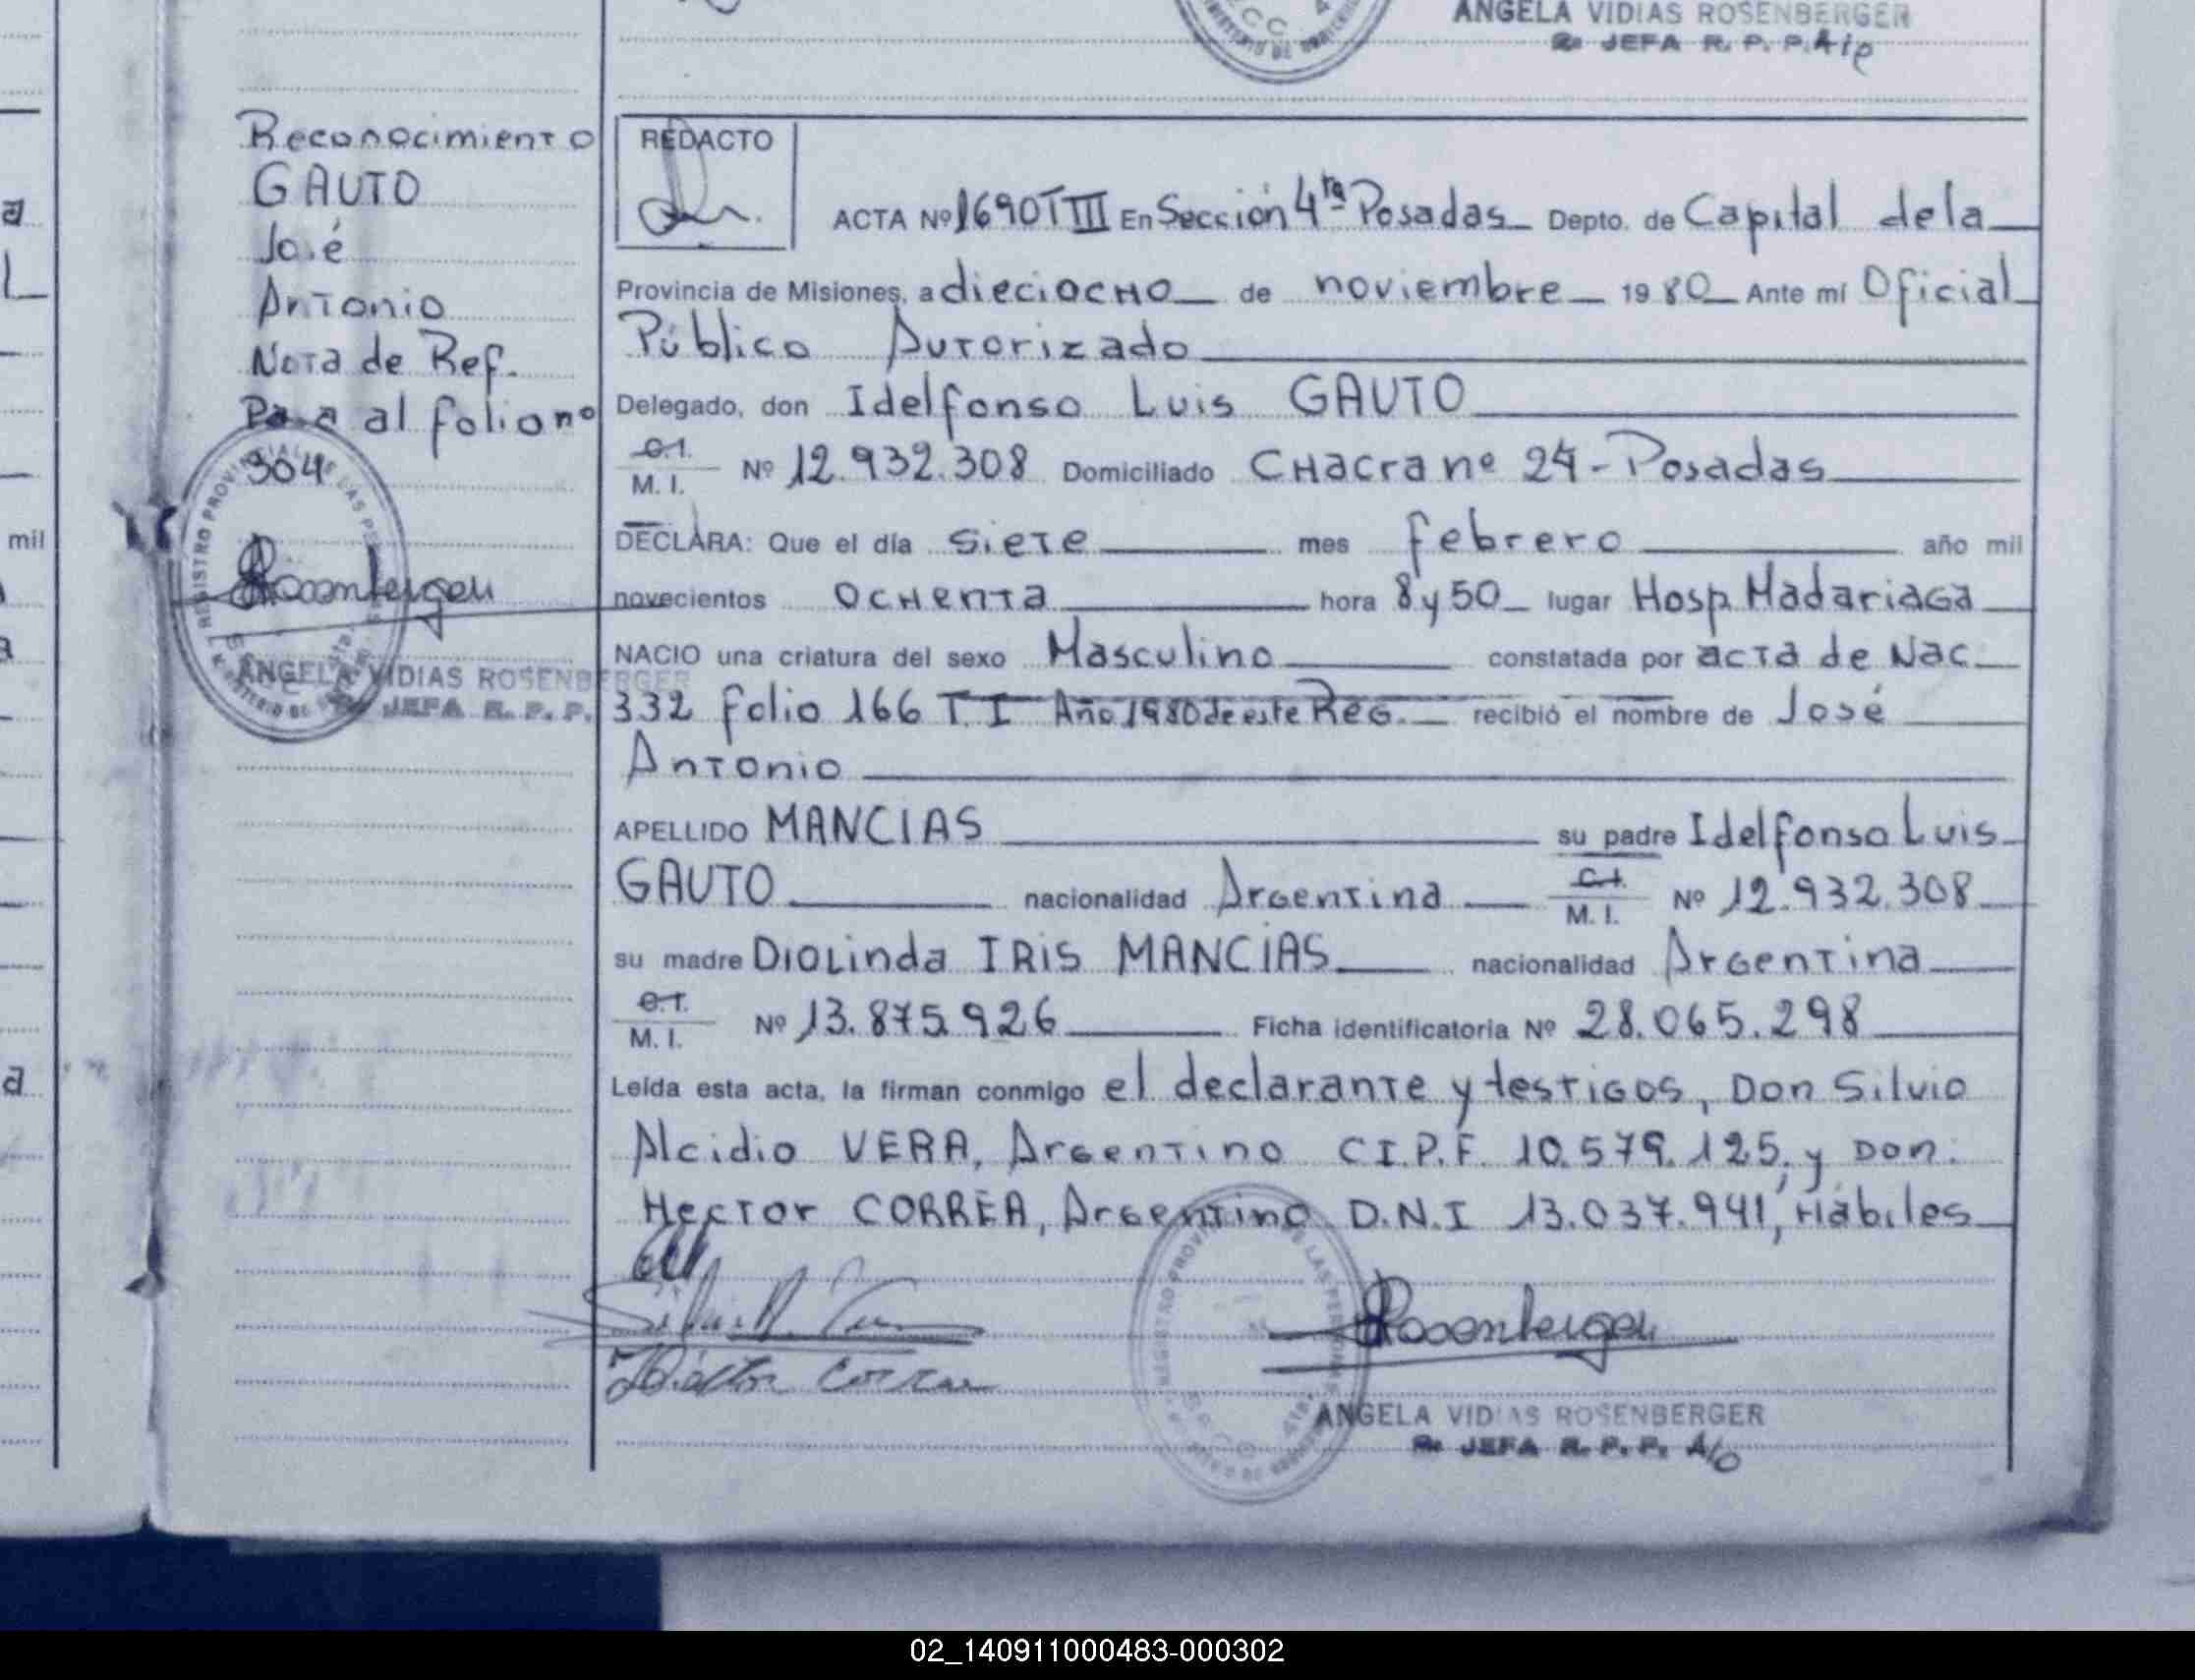 ANGELA VIDIAS ROSENBERGER
JEFA R. P. P.
Reconocimiento
GAUTO
José
Antonio
Nota de Ref.
Pasa al folio nº
304
REGISTRO PROVINCIAL DE LAS
ANGELA VIDIAS ROSENBERGER
JEFA R. P. P.
mil
REDACTO
ACTA Nº 1690 T III En Sección 4ta Posadas Depto. de Capital de la
Provincia de Misiones, a dieciocho de noviembre 1980 Ante mí Oficial
Público Autorizado
Delegado, don Idelfonso Luis GAUTO
C.I.
M. I. Nº 12.932.308 Domiciliado CHacra nº 24 - Posadas
DECLARA: Que el día siete mes febrero año mil
novecientos ochenta hora 8 y 50 lugar Hosp. Madariaga
NACIO una criatura del sexo Masculino constatada por acta de Nac
332 folio 166 T. I Año 1980 de este Reg. recibió el nombre de José
Antonio
APELLIDO MANCIAS su padre Idelfonso Luis
GAUTO nacionalidad Argentina C.I. M. I. Nº 12.932.308
su madre Diolinda IRIS MANCIAS nacionalidad Argentina
C.I.
M. I. Nº 13.875.926 Ficha identificatoria Nº 28.065.298
Leída esta acta, la firman conmigo el declarante y testigos, Don Silvio
Alcidio VERA, Argentino C.I.P.F. 10.579.125, y Don.
Hector CORREA, Argentino D.N.I 13.037.941, Hábiles
Rosenberger
ANGELA VIDIAS ROSENBERGER
JEFA R. P. P. A/c
02_140911000483-000302